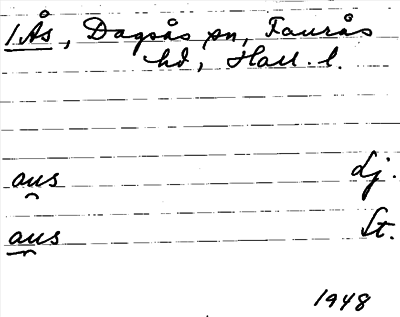 1 Ås, Dagsås sn, Faurås
hd, Hall. l.
aus dj.
aus St.
1948